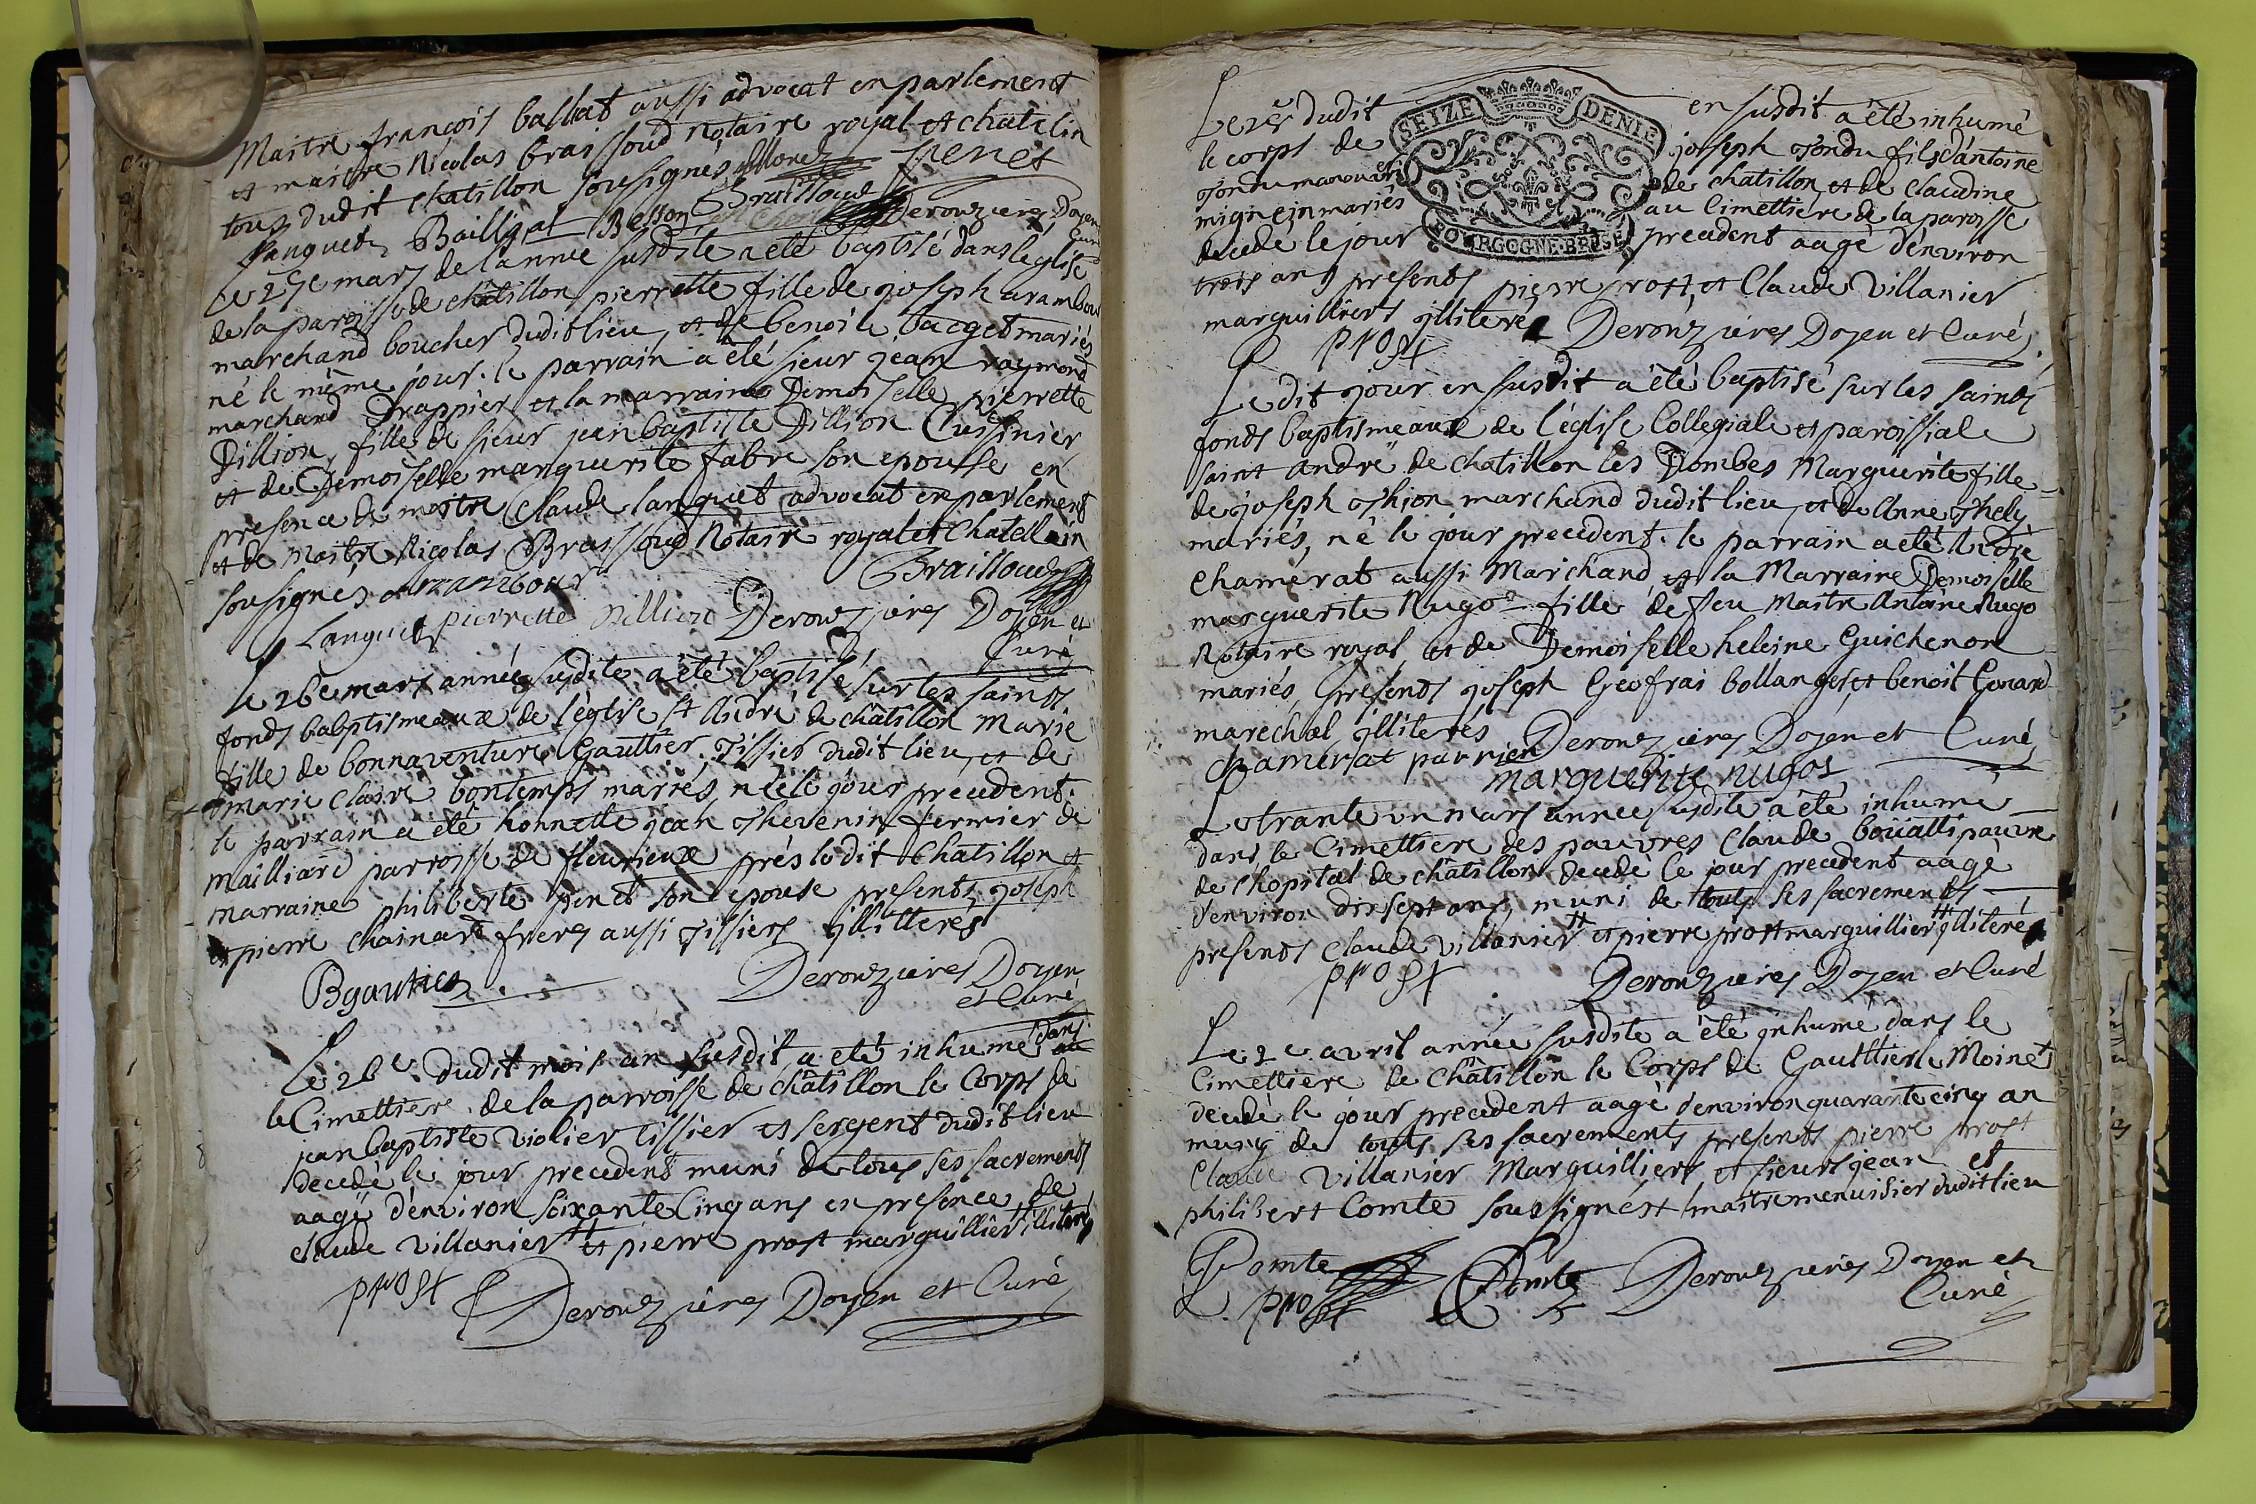 Maitre françois ballat aussi advocat en parlement
et maitre Nicolas braissoud notaire royal et chatelin
tous dudit chatillon sousignés
Languet Bailly Besson Brailloud Derouzieres Doyen
Curé
Le 25e mars de lannée susdite a été baptisé dans leglise
de la paroisse de chatillon pierrette fille de joseph arambour
marchand boucher dudit lieu, et de benoite bacget mariés
né le même jour. le parrain a été sieur jean raymond
marchand Drappier et la marraine Demoiselle pierrette
Dillion, fille de sieur jean baptiste Dillion Cuisinier
et de Demoiselle marguerite fabre son epouse en
presence de maitre Claude languet advocat en parlement
et de Maitre Nicolas Brassoud Notaire royal et Chatellain
sousignés arambour Brailloud
Languet pierrette Dillion Derouzieres Doyen et
Curé
le 26e mars année susdite a été baptisé sur les saints
fonds babptismeaux de léglise St André de châtillon Marie
fille de bonnaventure Gauttier, Tissier dudit lieu, et de
marie Claire bontemps mariés, né le jour precedent.
le parrain a été honnette jean thevenin fermier de
mailliard parroisse de fleurieux prés ledit Chatillon et
marraine philiberte pinet son epouse presents joseph
et pierre chainard freres aussi tissiers illitteres
Bgautier Derouzieres Doyen
et Curé
Le 26e dudit mois an susdit a été inhumé dans
le Cimettiere de la parroisse de châtillon le Corps de
jean baptiste violier tissier et sergent dudit lieu
decedé le jour precedent muni de tous ses sacrements
aagé d'environ soixante Cinq ans en presence de
claude villanier et pierre prost marguillier illiteré
prost Derouzieres Doyen et Curé
Le 28e dudit SEIZE DENIE en susdit a été inhumé
le corps de joseph fils d'antoine
de chatillon et de claudine
mariés au Cimettiere de la paroisse
decedé le jour BOURGOGNE·BRESSE precedent aagé d'environ
trois ans presents pierre prost, et Claude villanier
marguilliers illiteré
prost Derouzieres Doyen et Curé
Le dit jour en susdit a été baptisé sur les saints
fonds baptismeaux de l'église Collegiale et paroissiale
saint andré de chatillon les Dombes Marguerite fille
de joseph marchand dudit lieu, et de Anne
mariés, né le jour precedent. le parrain a été André
Chamerat aussi Marchand, et la Marraine Demoiselle
marguerite Nugo fille de feu Maitre Antoine Nugo
Notaire royal, et de Demoiselle heleine Guichenon
mariés, presents joseph Geofrai bollanger et benoit Gerard
marechal illiterés Derouzieres Doyen et Curé
chamerat parrien
marguerite nugos
Le trante un mars année susdite a été inhumé
dans le Cimettiere des pauvres Claude boüatti pauvre
de l'hopital de châtillon decedé le jour precedent aagé
d'environ dixsept ans, muni de touts ses sacrements
presents Claude villanier et pierre prost marguillier illiteré
prost Derouzieres Doyen et Curé
Le 2e avril année susdite a été inhumé dans le
Cimettiere de Châtillon le Corps de Gaulttier Moinet
decedé le jour precedent aagé d'environ quarante cinq an
muny de touts ses sacrements presents pierre prost
Claude villanier Marguilliers, et sieurs jean et
philibert Comte soussignés maitre menuisier dudit lieu
Comte
prost Comte Derouzieres Doyen et
Curé